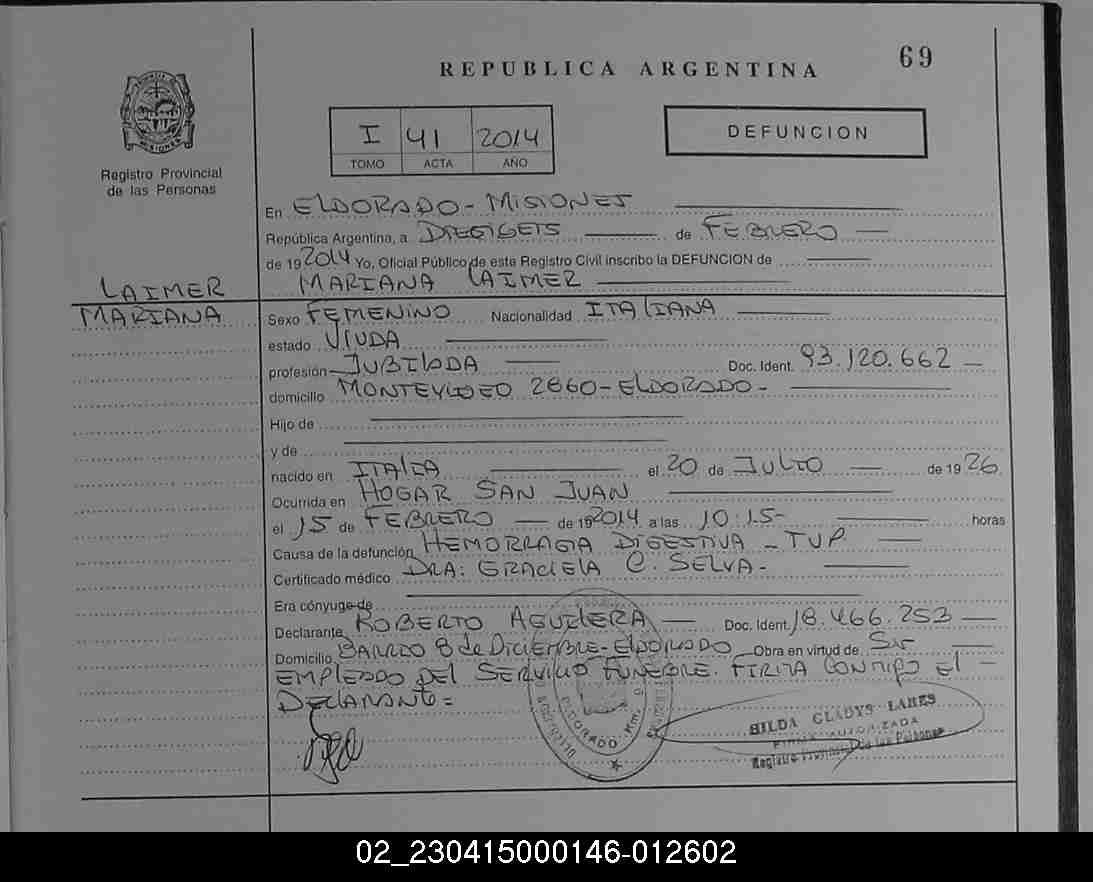 69
REPUBLICA ARGENTINA
I 41 2014
TOMO ACTA AÑO
DEFUNCION
Registro Provincial
de las Personas
En ELDORADO - MISIONES
República Argentina, a DIECISEIS de FEBRERO
de 192014 Yo, Oficial Público de este Registro Civil inscribo la DEFUNCION de
LAIMER
MARIANA
MARIANA LAIMER
Sexo FEMENINO Nacionalidad ITALIANA
estado VIUDA
profesión JUBILADA Doc. Ident. 93.120.662
domicilio MONTEVIDEO 2860 - ELDORADO -
Hijo de
y de
nacido en ITALIA el 20 de JULIO de 1926
Ocurrida en HOGAR SAN JUAN
el 15 de FEBRERO de 192014 a las 10:15- horas
Causa de la defunción HEMORRAGIA DIGESTIVA - TVP
Certificado médico DRA: GRACIELA C. SELVA -
Era cónyuge de
Declarante ROBERTO AGUILERA Doc. Ident. 18.466.253
Domicilio BARRIO 8 de DICIEMBRE - ELDORADO Obra en virtud de SER
EMPLEADO DEL SERVICIO FUNEBRE. FIRMA CONMIGO El -
DEClARANTE =
ELDORADO Km. 9
HILDA GLADYS LARES
FIRMA AUTORIZADA
Registro Provincial de las Personas
02_230415000146-012602